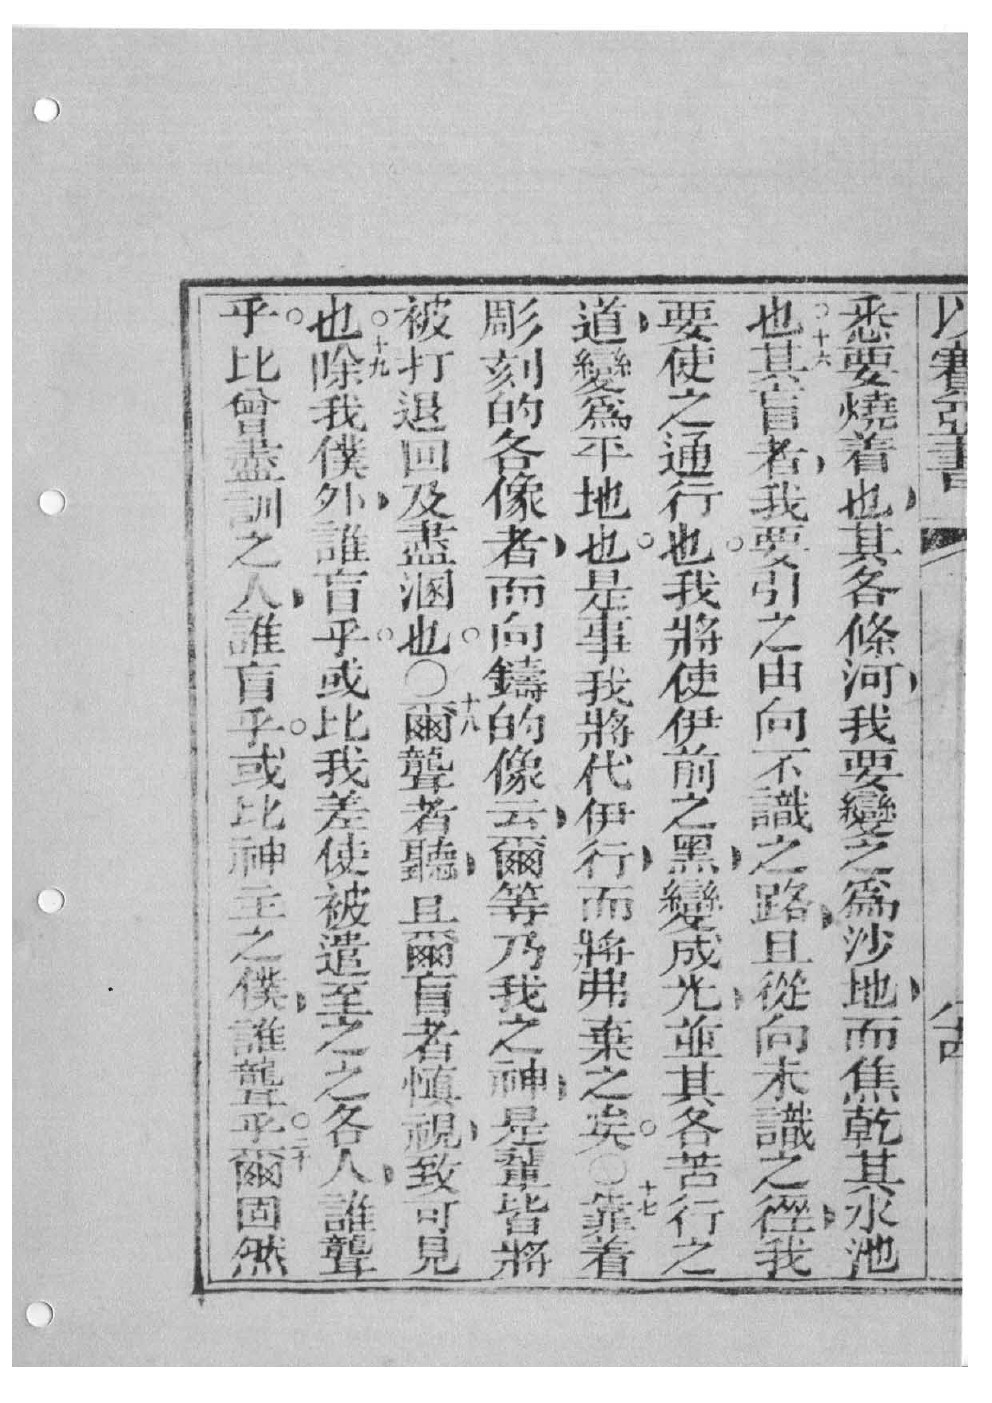 以賽亞書
悉要燒着也其各條河我要變之爲沙地而焦乾其水池
也。十六其盲者我要引之由向不識之路且從向未識之徑我
要使之通行也。我將使伊前之黑變成光並其各苦行之
道變爲平地也。是事我將代伊行而將弗棄之矣。〇十七靠着
彫刻的各像者而向鑄的像云爾等乃我之神是輩皆將
被打退回及盡溷也。〇十八爾聾者聽且爾盲者慎視致可見
也。十九除我僕外誰盲乎。或比我差使被遣至之之各人誰聾
乎。比曾盡訓之人誰盲乎。或比神主之僕誰聾乎。二十爾固然